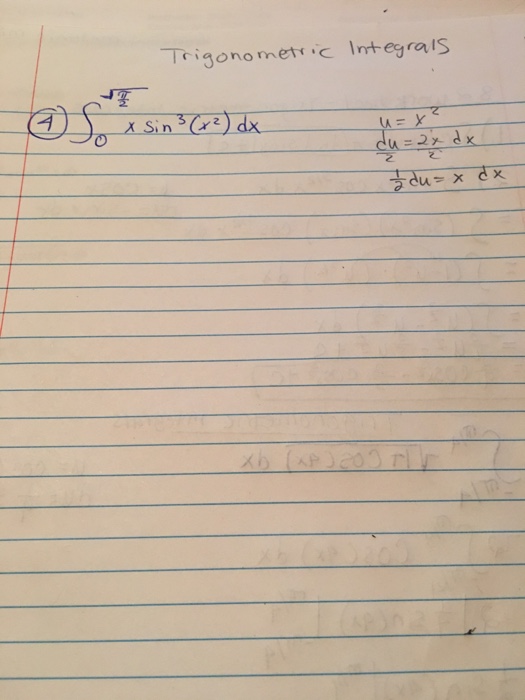 Trigonometric Integrals
④ ∫₀^√(π/2) x sin³(x²) dx
u = x²
du/2 = 2x/2 dx
½ du = x dx